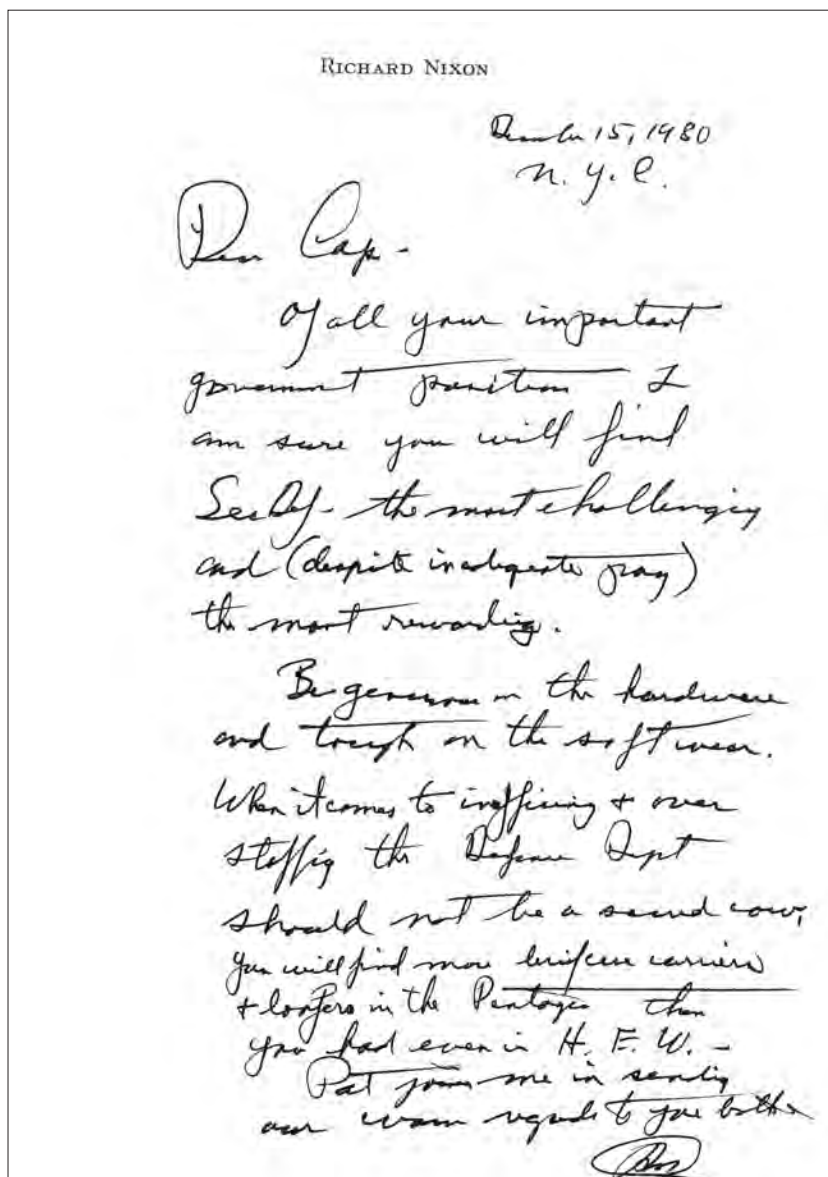 RICHARD NIXON
December 15, 1980
N.Y.C.
Dear Cap -
Of all your important
government positions I
am sure you will find
SecDef - the most challenging
and (despite inadequate pay)
the most rewarding.
Be generous on the hardware
and tough on the softwear.
When it comes to & over
staffing the Defense Dept
should not be a sacred cow,
you will find more briefcase carriers
& loafers in the Pentagon than
you had even in H.E.W. -
Pat joins me in sending
our warm regards to you both